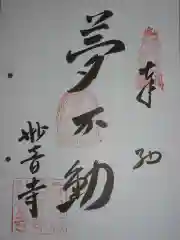 奉
夢不動
妙音寺